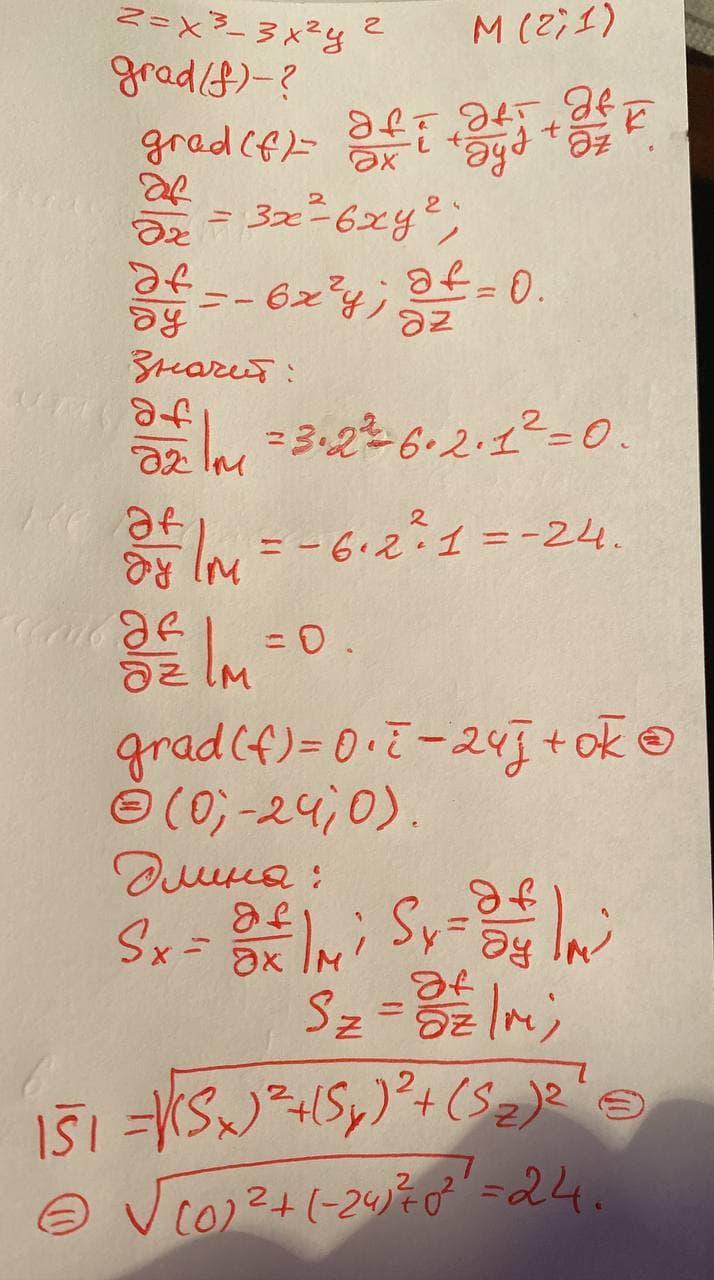 z=x³-3x²y² M(2;1)
grad(f)-?
grad(f)= ∂f/∂x i̅ + ∂f/∂y j̅ + ∂f/∂z k̅.
∂f/∂x = 3x²-6xy²;
∂f/∂y =-6x²y; ∂f/∂z = 0.
Значит:
∂f/∂x|м =3·2²-6·2·1²=0.
∂f/∂y|м = -6·2²·1 = -24.
∂f/∂z|м = 0.
grad(f)=0·i̅ -24j̅ +0k̅ ⊜
⊜(0;-24;0).
Длина:
Sx = ∂f/∂x|м; Sy = ∂f/∂y|м;
Sz = ∂f/∂z|м;
|S̅| =√((Sx)²+(Sy)²+(Sz)²) ⊜
⊜ √((0)²+(-24)²+0²) =24.